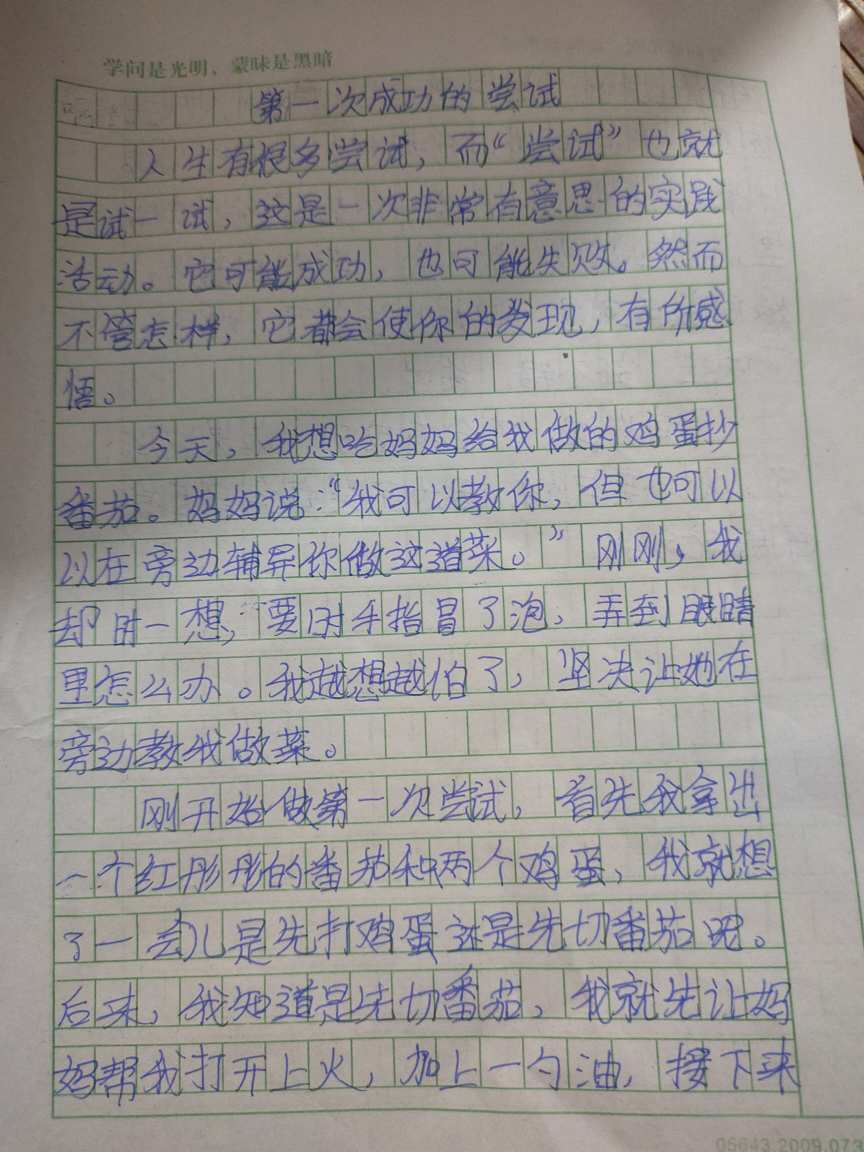 学问是光明、蒙昧是黑暗
第一次成功的尝试
人生有很多尝试，而“尝试”也就
是试一试，这是一次非常有意思的实践
活动。它可能成功，也可能失败。然而
不管怎样，它都会使你的发现，有所感
悟。
今天，我想吃妈妈给我做的鸡蛋抄
番茄。妈妈说：“我可以教你，但也可以
以在旁边辅导你做这道菜。”刚刚，我
却时一想，要时手指冒了泡，弄到眼睛
里怎么办。我越想越怕了，坚决让她在
旁边教我做菜。
刚开始做第一次尝试，首先我拿出
一个红彤彤的番茄和两个鸡蛋，我就想
了一会儿是先打鸡蛋还是先切番茄呢。
后来，我知道是先切番茄，我就先让妈
妈帮我打开上火，加上一勺油，接下来
05643.2009.073